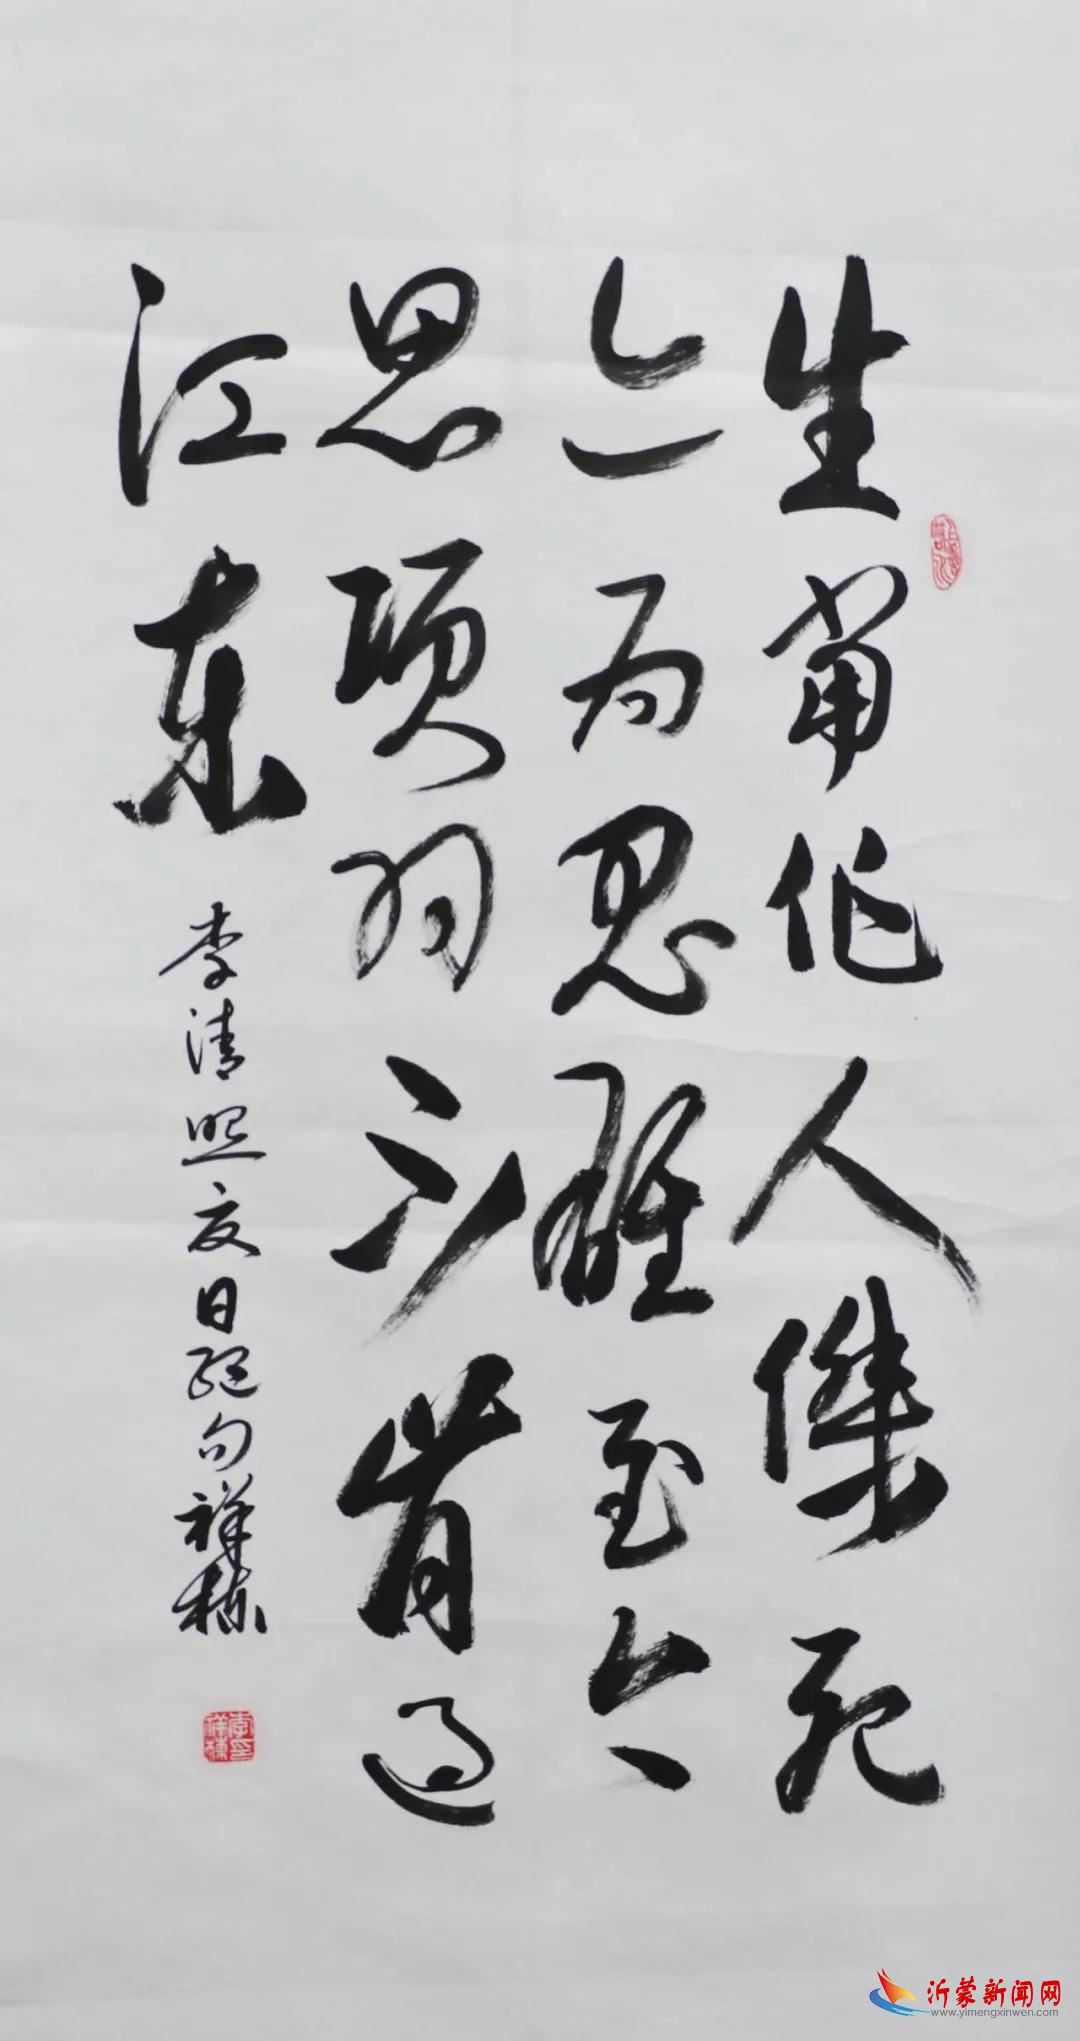 生當作人傑死
亦為鬼雄至今
思項羽不肯過
江東
李清照夏日絕句祥棟
李印祥棟
沂蒙新闻网
www.yimengxinwen.com